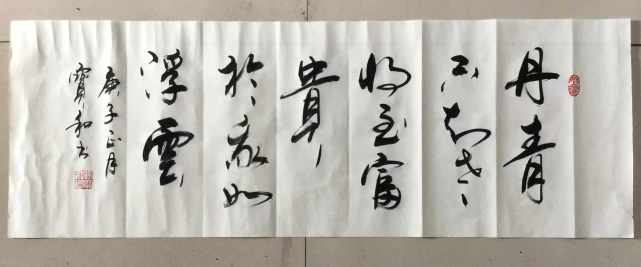 丹青
不知老
将至富
貴
於我如
浮雲
庚子正月
寶和书